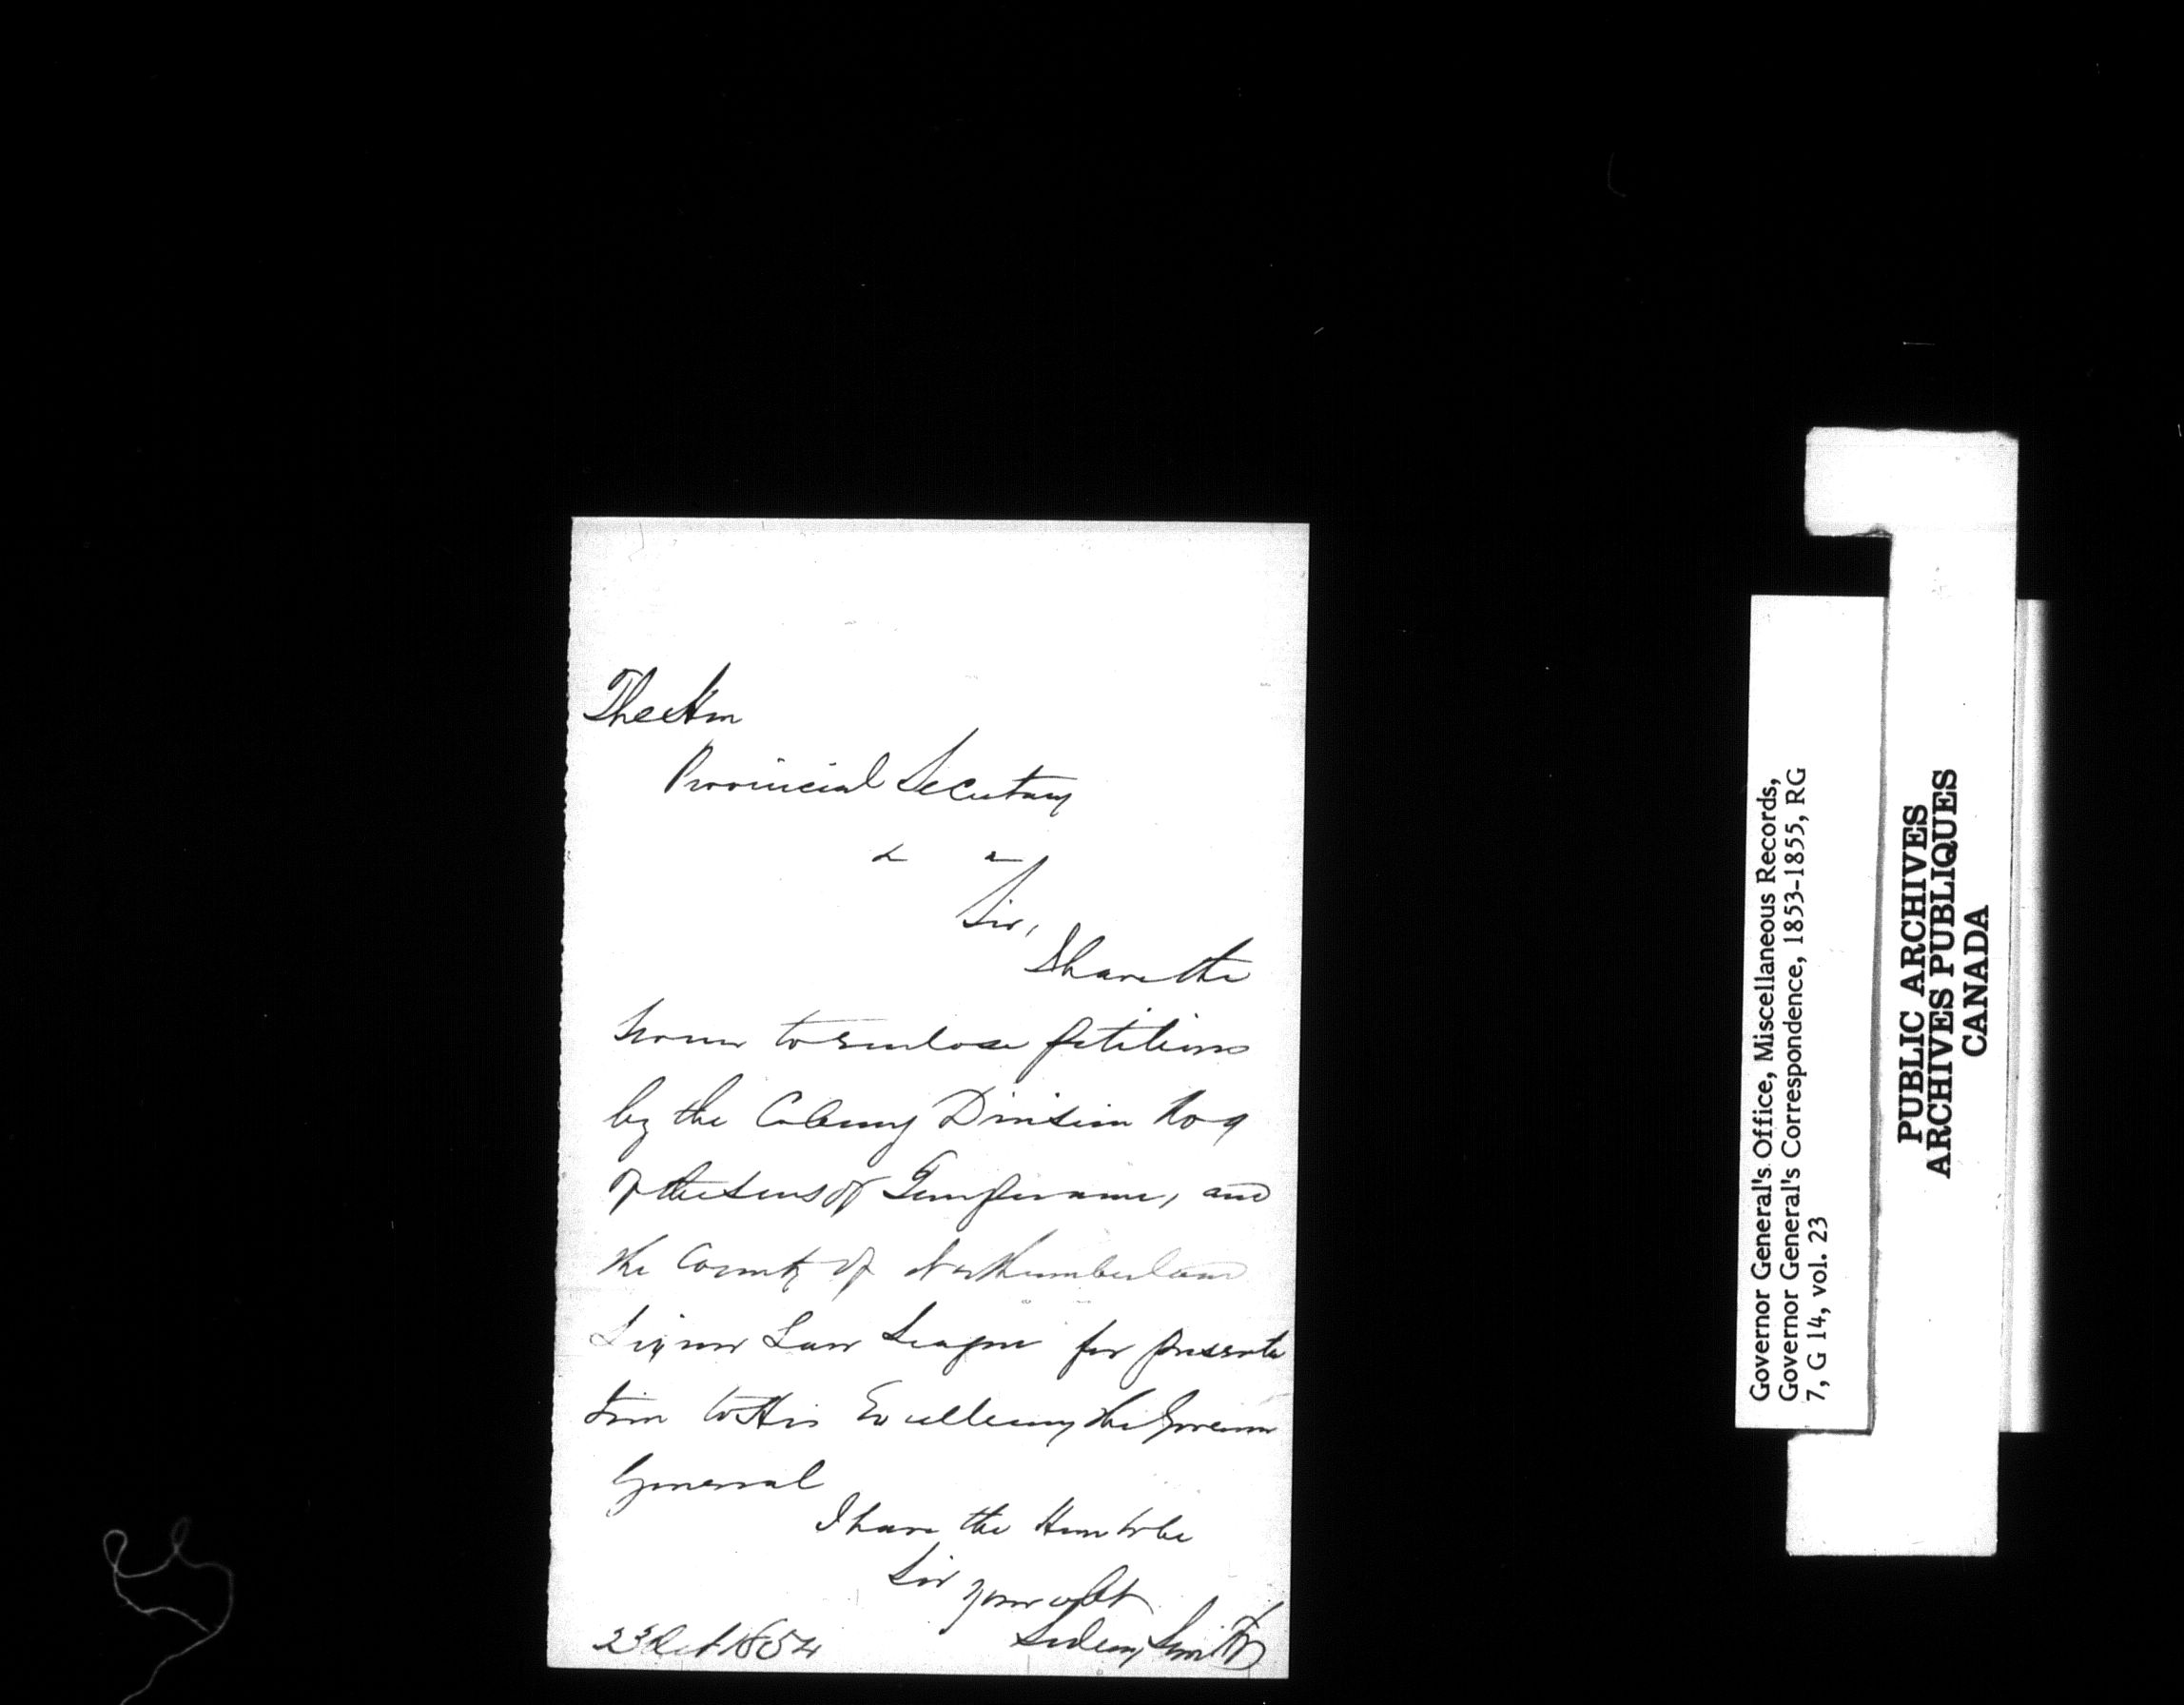 The Hon
Provincial Secretary
& &
Sir,
I have the
honor to enclose petitions
by the Colborne Division No 9
of the Sons of Temperance, and
the County of Northumberland
Liquor Law League for presenta
tion to His Excellency the Governor
General
I have the Honor to be
Sir your obt
Sidney Smith
23 Oct 1854
Governor General's Office, Miscellaneous Records,
Governor General's Correspondence, 1853-1855, RG
7, G 14, vol. 23
PUBLIC ARCHIVES
ARCHIVES PUBLIQUES
CANADA